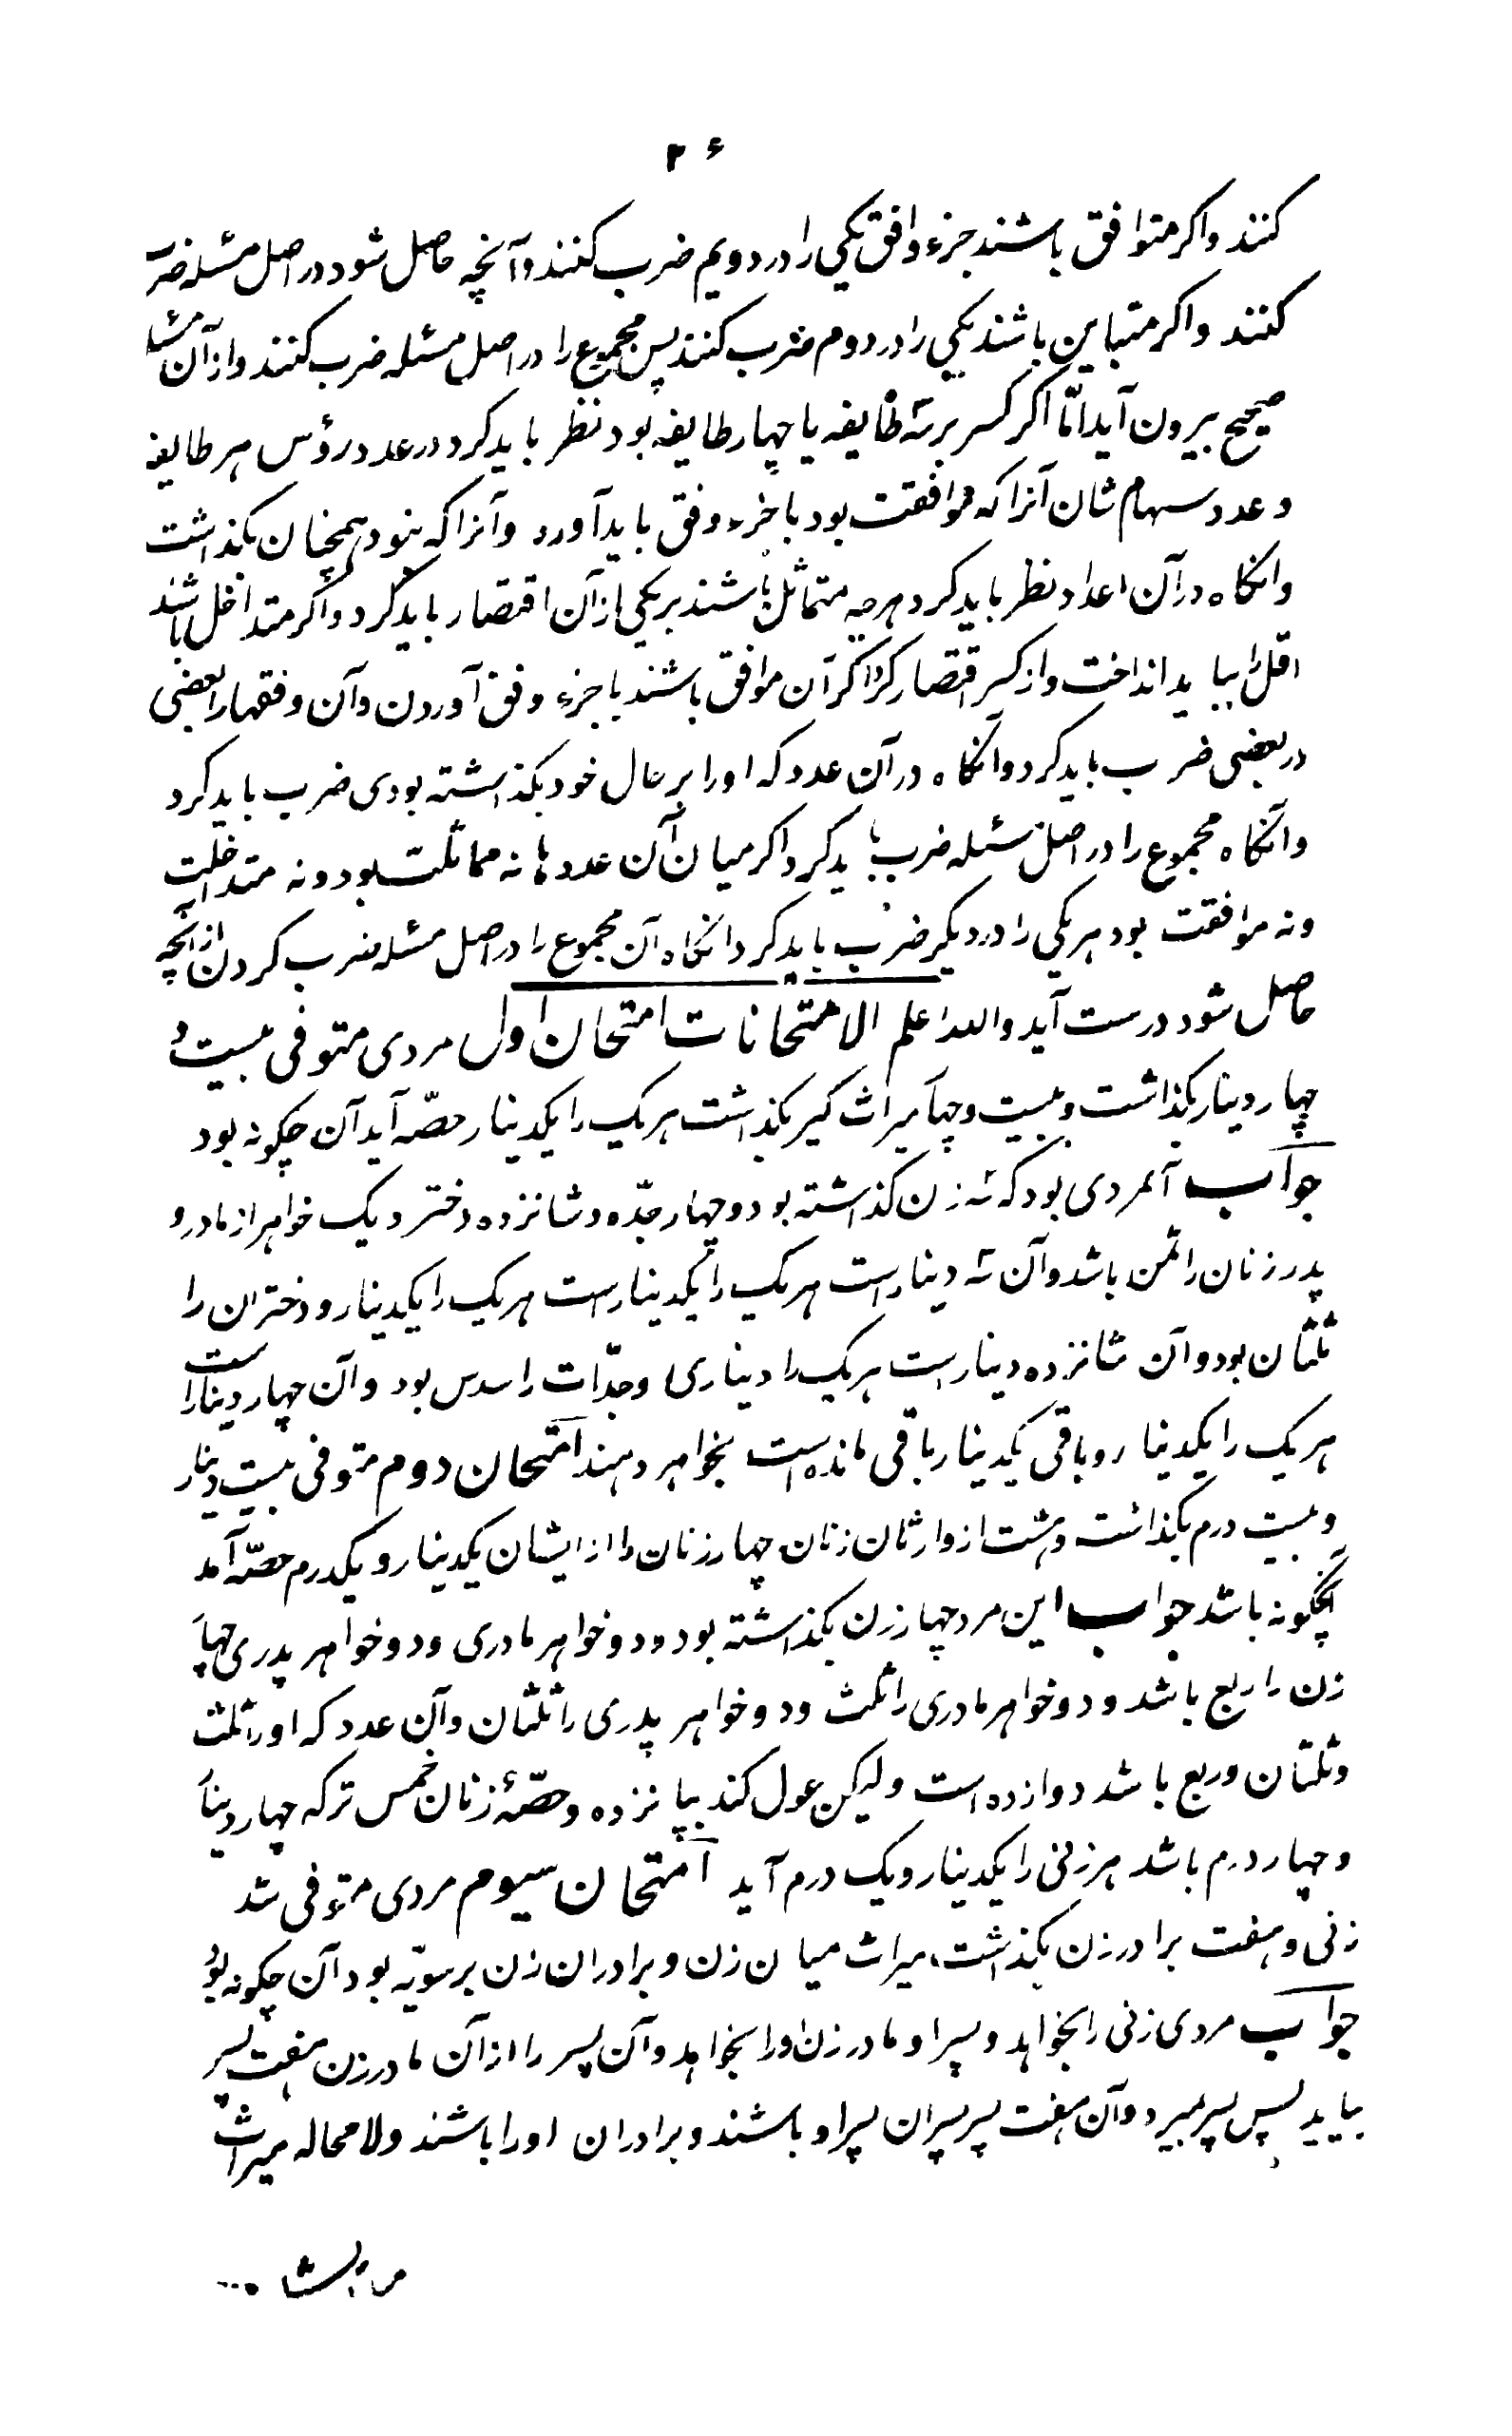 ۲۶
کنند واکر متوافق باشند جزء وافق یکی را در دویم ضرب کنند و آنچه حاصل شود در اصل مسئله ضرب
کنند واکر متباین باشند یکی را در دوم ضرب کنند پس مجموع را در اصل مسئله ضرب کنند واز آن مسئله
صحیح بیرون آید امّا اکر کسر بر سه طایفه یا چهار طایفه بود نظر باید کرد در عدد رؤس هر طایفه
وعدد سهام شان آنرا که موافقت بود با جزء وفق باید آورد وآنرا که نبود همچنان بکذاشت
وانکاه در آن اعداد نظر باید کرد هرچه متماثل باشند بر یکی از آن اقتصار باید کرد واکر متداخل باشند
اقل را بباید انداخت واز کسر اقتصار کرد اکر آن موافق باشند با جزء وفق آوردن وآن وفقها را بعضی
در بعضی ضرب باید کرد وانکاه در آن عدد که او را بر حال خود بکذاشته بودی ضرب باید کرد
وانکاه مجموع را در اصل مسئله ضرب باید کرد اکر میان آن عددها نه مماثلت بود ونه متداخلت
ونه موافقت بود هر یکی را در دیکر ضرب باید کرد انکاه آن مجموع را در اصل مسئله ضرب کردن از آنچه
حاصل شود درست آید والله اعلم الامتحانات امتحان اول مردی متوفی بیست و
چهار دینار بکذاشت وبیست وچهار میراث کیر بکذاشت هر یک را یکدینار حصّه آید آن چکونه بود
جواب آنمردی بود که سه زن کذاشته بود وچهار جدّه وشانزده دختر ویک خواهر از مادر و
پدر زنان را ثمن باشد وآن سه دینار است هر یک را یکدینار است هر یک را یکدینار ودختران را
ثلثان بود وآن شانزده دینار است هر یک را دیناری وجدّات را سدس بود وآن چهار دینار است
هر یک را یکدینار وباقی یکدینار باقی مانده است بخواهر دهند امتحان دوم متوفی بیست دینار
وبیست درم بکذاشت وهشت از وارثان زنان چهار زنان را از ایشان یکدینار ویکدرم حصّه آمد
چکونه باشد جواب این مرد چهار زن بکذاشته بود ودو خواهر مادری ودو خواهر پدری چهار
زن را ربع باشد ودو خواهر مادری را ثلث ودو خواهر پدری را ثلثان وآن عدد که او را ثلث
وثلثان وربع باشد دوازده است ولیکن عول کند بپانزده وحصّهٔ زنان خمس ترکه چهار دینار
وچهار درم باشد هر زنی را یکدینار ویک درم آید امتحان سیوم مردی متوفی شد
زنی وهفت برادر زن بکذاشت میراث میان زن وبرادران زن بر سویّه بود آن چکونه بود
جواب مردی زنی را بخواهد وپسر او مادر زن او را بخواهد وآن پسر را از آن مادر زن هفت پسر
بیاید پس پسر بمیرد وآن هفت پسر پسران پسر او باشند وبرادران او را باشند ولا محاله میراث